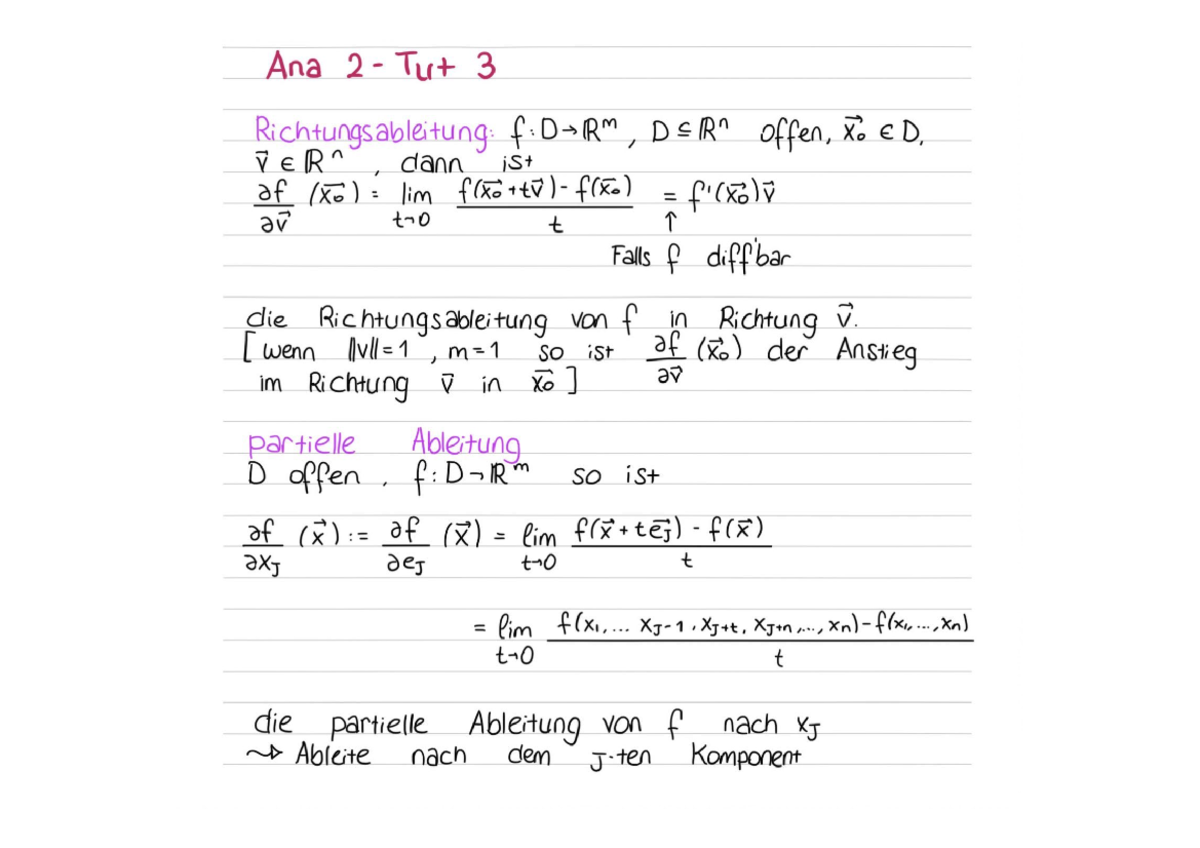 Ana 2 - Tut 3
Richtungsableitung: f : D → ℝᵐ , D ⊆ ℝⁿ offen, x⃗₀ ∈ D,
v⃗ ∈ ℝⁿ , dann ist
∂f/∂v⃗ (x⃗₀) = lim t→0 (f(x⃗₀ + tv⃗) - f(x⃗₀))/t = f'(x⃗₀)v⃗
↑
Falls f diff'bar
die Richtungsableitung von f in Richtung v⃗.
[ wenn ||v|| = 1 , m = 1 so ist ∂f/∂v⃗ (x⃗₀) der Anstieg
im Richtung v⃗ in x⃗₀ ]
partielle Ableitung
D offen , f : D → ℝᵐ so ist
∂f/∂x_J (x⃗) := ∂f/∂e_J (x⃗) = lim t→0 (f(x⃗ + te⃗_J) - f(x⃗))/t
= lim t→0 (f(x₁, ... x_J-1 , x_J+t , x_J+n ,..., xn) - f(x₁, ..., xn))/t
die partielle Ableitung von f nach x_J
⇝ Ableite nach dem J-ten Komponent